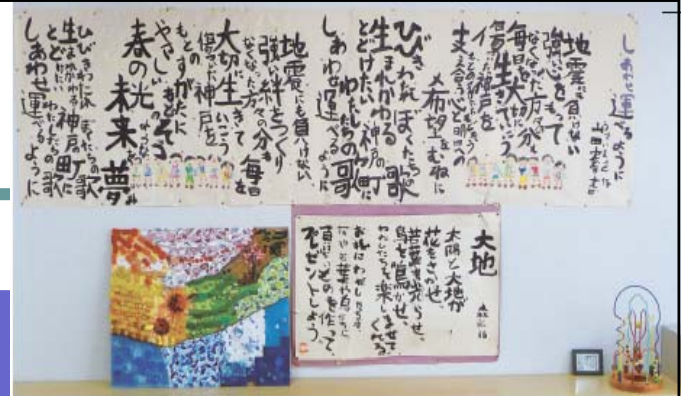 しあわせ運べるように
地震にも負けない
強い心をもって
亡くなった方々の分も
毎日を大切に生きていこう
傷ついた神戸を
もとの姿にもどそう
支え合う心と明日への
希望を胸に
ひびきわたれぼくたちの歌
生まれかわる神戸の町に
とどけたいわたしたちの歌
しあわせ運べるように
地震にも負けない
強い絆をつくり
亡くなった方々の分も
毎日を
大切に生きていこう
傷ついた神戸を
もとのすがたにもどそう
やさしい
春の光のような
未来を夢み
ひびきわたれぼくたちの歌
生まれかわる神戸の町に
とどけたいわたしたちの歌
しあわせ運べるように
大地
太陽と大地が
花をさかせ、
若葉を光らせ、
鳥を鳴かせ、
わたしたちを楽しませてくれる
お礼にわたしたちは
花や若葉や鳥たちに
プレゼントしよう。